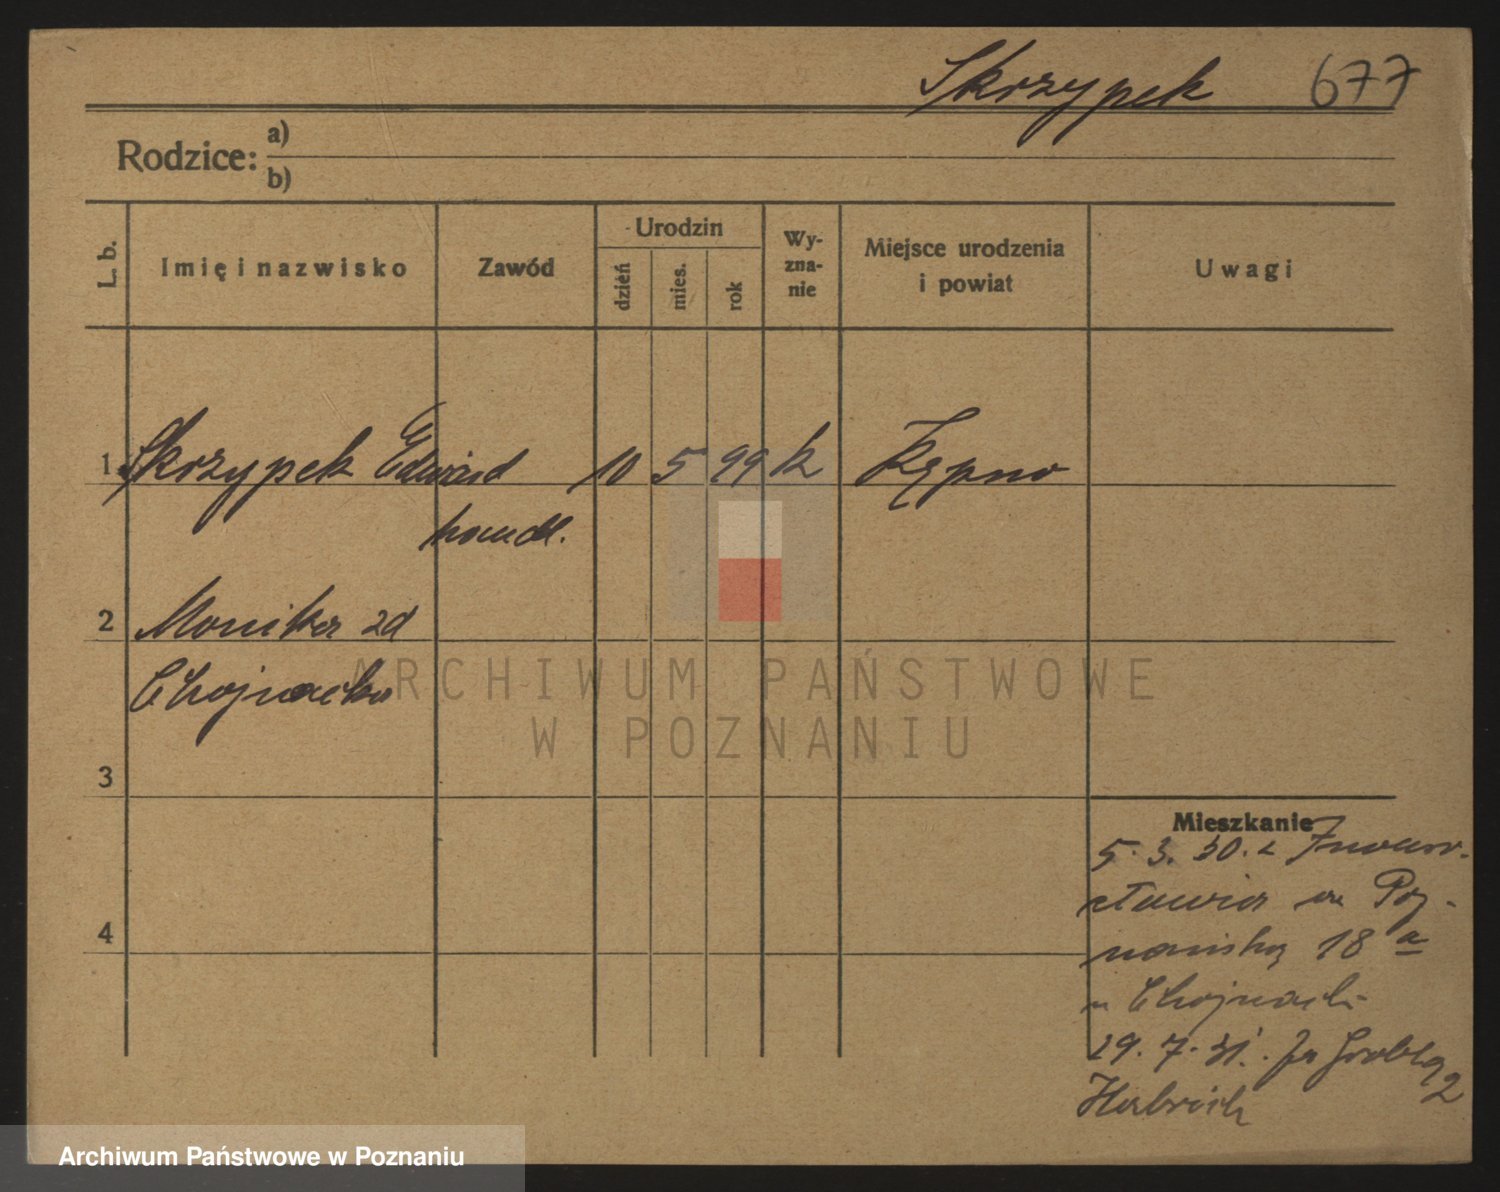 Skrzypek 677
Rodzice: a)
b)
L. b.
Imię i nazwisko
Zawód
Urodzin
dzień
mies.
rok
Wy-
zna-
nie
Miejsce urodzenia
i powiat
Uwagi
1 Skrzypek Edward 10 5 99 k Kępno
handl.
2 Monika zd
Chojnacka
3
4
Mieszkanie
5.3.30. z Inowro-
cławia na Poz-
nańską 18 a
u Chojnack.
29.7.31. Groblą 2
ARCHIWUM PAŃSTWOWE
W POZNANIU
Archiwum Państwowe w Poznaniu